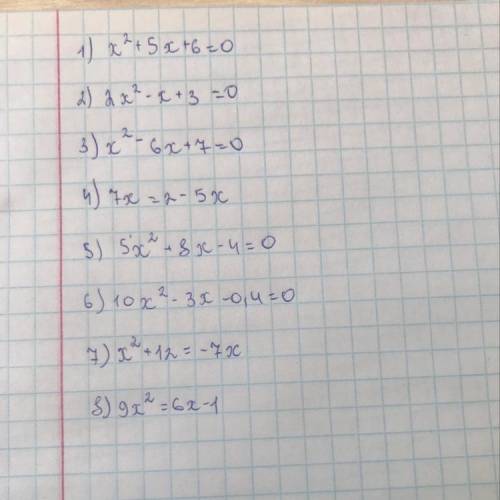 1) x²+5x+6=0
2) 2x²-x+3=0
3) x²-6x+7=0
4) 7x=2-5x
5) 5x²+8x-4=0
6) 10x²-3x-0,4=0
7) x²+12=-7x
8) 9x²=6x-1